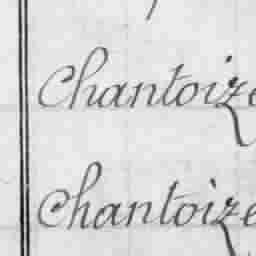 Chantoize
Chantoize